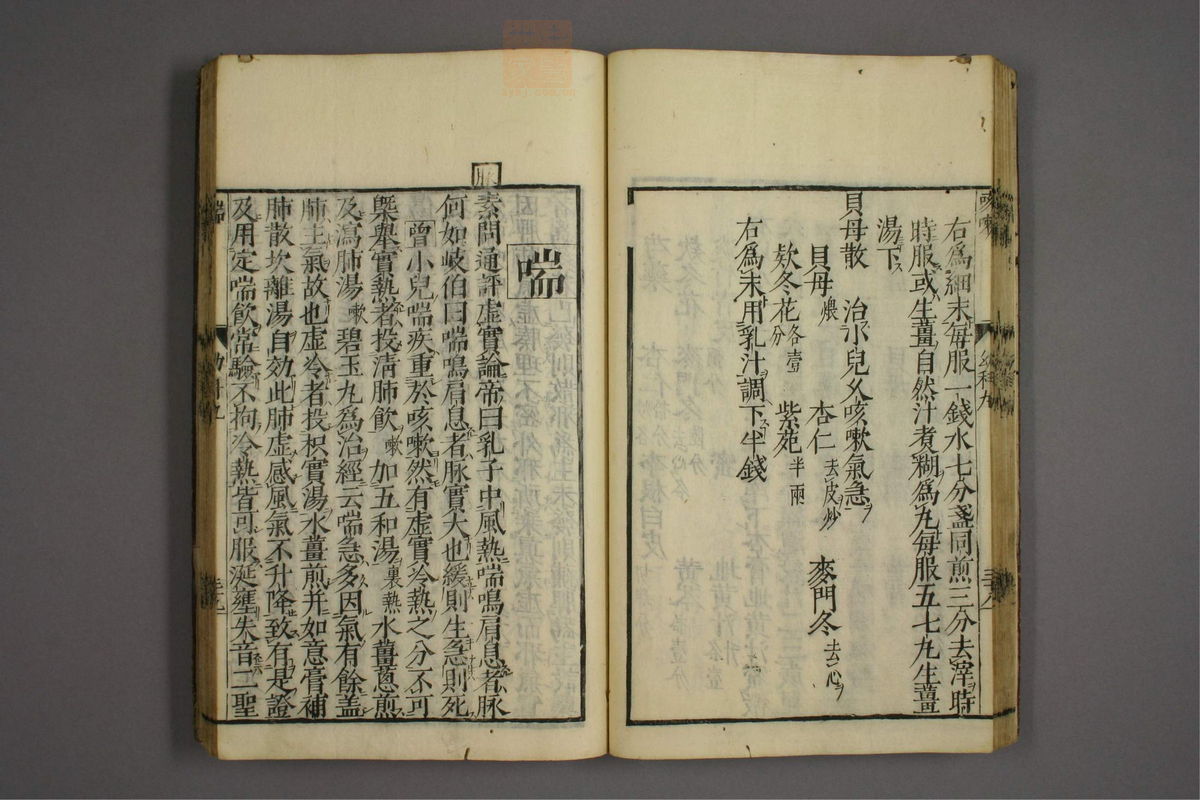 右為細末每服一錢水七分盞同煎三分去滓時
時服或生薑自然汁煮糊為丸每服五七丸生薑
湯下
貝母散　治小兒久咳嗽氣急
貝母煨　杏仁去皮炒　麥門冬去心
欵冬花各壹分　紫菀半兩
右為末用乳汁調下半錢
喘
素問通評虛實論帝曰乳子中風熱喘鳴肩息者脉
何如岐伯曰喘鳴肩息者脉實大也緩則生急則死
曾小兒喘疾重於咳嗽然有虛實冷熱之分不可
槩舉實熱者投清肺飲嗽加五和湯裏熱水薑蔥煎
及瀉肺湯嗽碧玉丸為治經云喘急多因氣有餘蓋
肺主氣故也虛冷者投枳實湯水薑煎并如意膏補
肺散坎離湯自効此肺虛感風氣不升降致有是證
及用定喘飲常驗不拘冷熱皆可服涎壅失音二聖